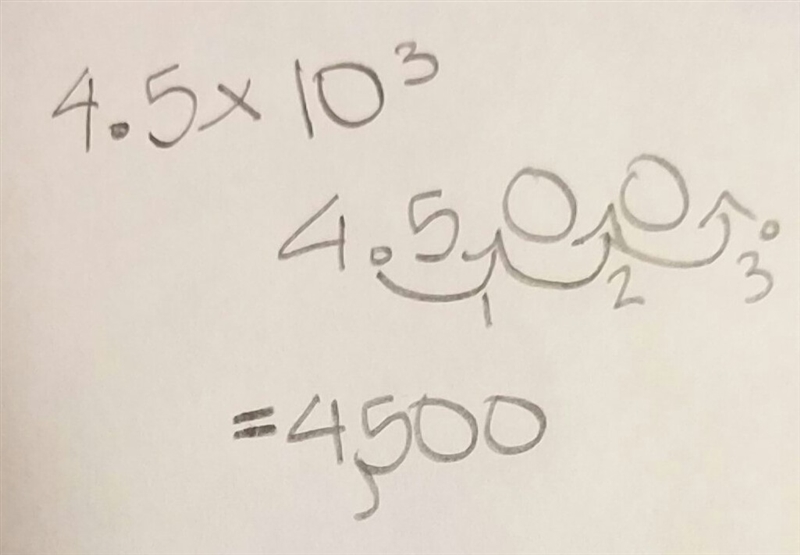 4.5 × 10³
4.500.
1 2 3
=4,500